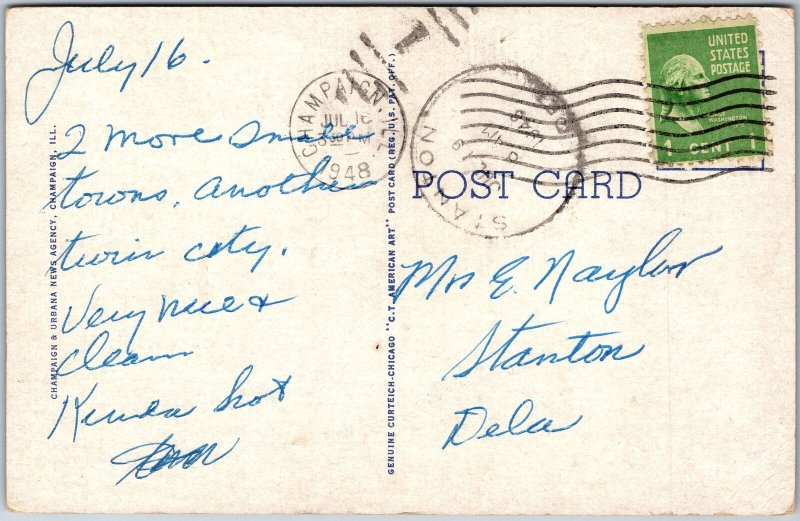 July 16.
2 More small
towns. Another
twin city.
Very nice &
clean
Kinda hot
CHAMPAIGN & URBANA NEWS AGENCY, CHAMPAIGN, ILL.
GENUINE CURTEICH-CHICAGO "C.T. AMERICAN ART" POST CARD (REG. U.S. PAT. OFF.)
CHAMPAIGN
JUL 16
1948
STANTON
DEL.
1948
UNITED
STATES
POSTAGE
WASHINGTON
1 CENT 1
POST CARD
Mrs E. Naylor
Stanton
Dela